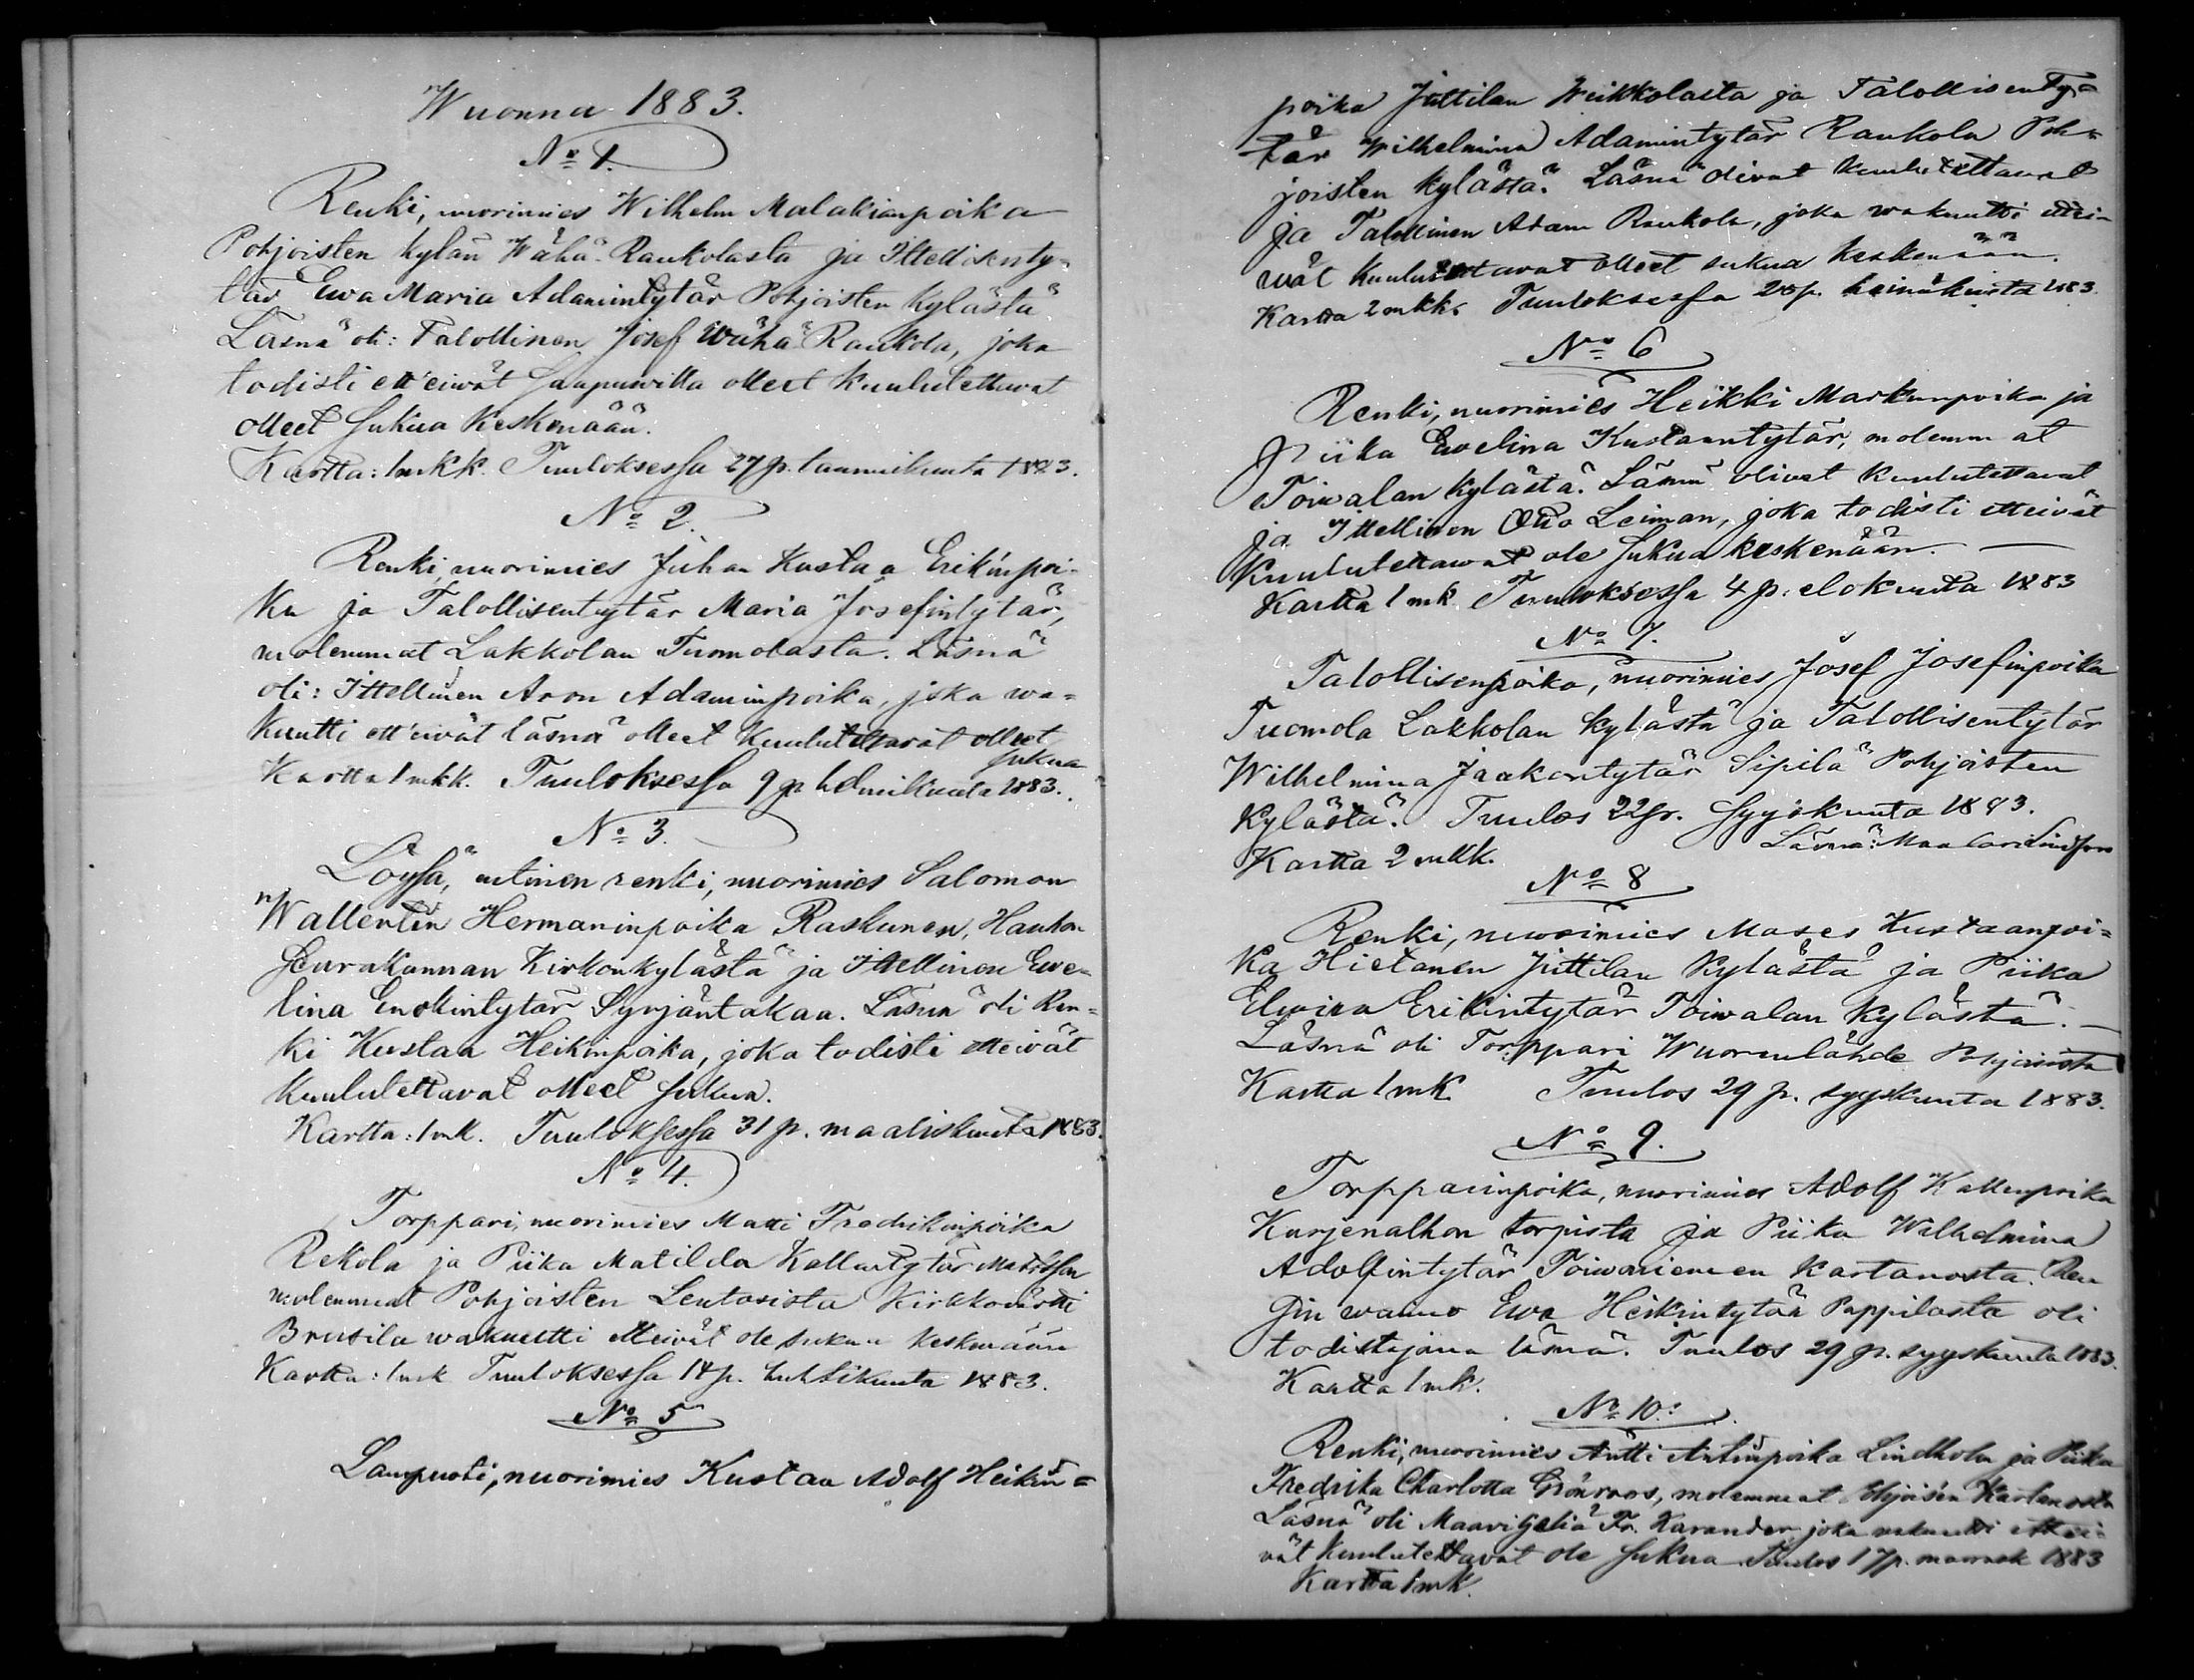 Wuonna 1883.
No 1.
Renki, nuorimies Wilhelm Malakianpoika
Pohjoisten kylän Wähä-Raukolasta ja Ittellisenty=
tär Ewa Maria Adamintytär Pohjoisten kylästä
Läsnä oli: Talollinen Josef Wähä Raukola, joka
todisti ett'eiwät saapuwilla olleet kuulutettawat
olleet sukua keskenään.
Kartta: 1mkk. Tuuloksessa 27 p. tammikuuta 1883.
No 2.
Renki, nuorimies Juhan Kustaa Erikinpoi-
ka ja Talollisentytär Maria Josefintytär,
molemmat Lakkolan Tuomolasta. Läsnä
oli: Ittellinen Aron Adaminpoika, joka wa=
kuutti ett'eiwät läsnä olleet kuulutettavat olleet
sukua
Kartta 1mkk. Tuuloksessa 9 p helmikuuta 1883.
No 3.
Löysä, entinen renki, nuorimies Salomon
Wallentin Hermaninpoika Raskunen, Hauhon
seurakunnan Kirkonkylästä ja Ittellinen Ewe=
lina Enokintytär Syrjäntakaa. Läsnä oli Ren=
ki Kustaa Heikinpoika, joka todisti etteiwät
kuulutettavat olleet sukua.
Kartta: 1mk. Tuuloksessa 31 p. maaliskuuta 1883.
No 4.
Torppari, nuorimies Matti Fredrikinpoika
Rekola ja Piika Matilda Kallentytär Mattsson
molemmat Pohjoisten Lentosista Kirkkowärtti
Brusila wakuutti etteiwät ole sukua keskenään
Kartta: 1mk Tuuloksessa 14p. huhtikuuta 1883.
No 5
Lampuoti, nuorimies Kustaa Adolf Heikin=
poika Juttilan Weikkolasta ja Talollisenty=
tär Wilhelmina Adamintytär Raukola Poh=
joisten kylästä. Läsnä olivat kuulutettawat
ja Talollinen Adam Raukola, joka wakuutti ettei-
wät kuulutettavat olleet sukua keskenään.
Kartta 2 mkk. Tuuloksessa 28p. heinäkuuta 1883.
No 6
Renki, nuorimies Heikki Markunpoika ja
Piika Ewelina Kustaantytär, molemmat
Toiwalan kylästä. Läsnä olivat kuulutettavat
ja Ittellinen Otto Leiman, joka todisti etteivät
kuulutettawat ole sukua keskenään.
Kartta 1 mk Tuuloksessa 4 p. elokuuta 1883
No 7.
Talollisenpoika, nuorimies Josef Josefinpoika
Tuomola Lakkolan kylästä ja Talollisentytär
Wilhelmina Jaakontytär Sipilä Pohjoisten
kylästä. Tuulos 22p. syyskuuta 1883.
Läsnä: Maalari Lindfors
Kartta 2 mkk.
No 8
Renki, nuorimies Moses Kustaanpoi=
ka Hietanen Juttilan kylästä ja Piika
Elwira Erikintytär Toiwalan kylästä.
Läsnä oli Torppari Wuorenlähde Pohjoista
Kartta 1 mk Tuulos 29 p. syyskuuta 1883.
No 9.
Torpparinpoika, nuorimies Adolf Kallenpoika
Kurjenalhon torpista ja Piika Wilhelmina
Adolfintytär Toiwoniemen kartanosta. Ren
gin waimo Ewa Heikintytär Pappilasta oli
todistajana läsnä. Tuulos 29 p. syyskuuta 1883.
Kartta 1 mk.
No 10.
Renki, nuorimies Antti Antinpoika Lindholm ja Piika
Fredrika Charlotta Grönroos, molemmat Pohjoisen Kartanosta
Läsnä oli Maaviljeliä Fr. Karander, joka wakuutti ettei-
vät kuulutettavat ole sukua. Tuulos 17p. marrask 1883
Kartta 1mk.